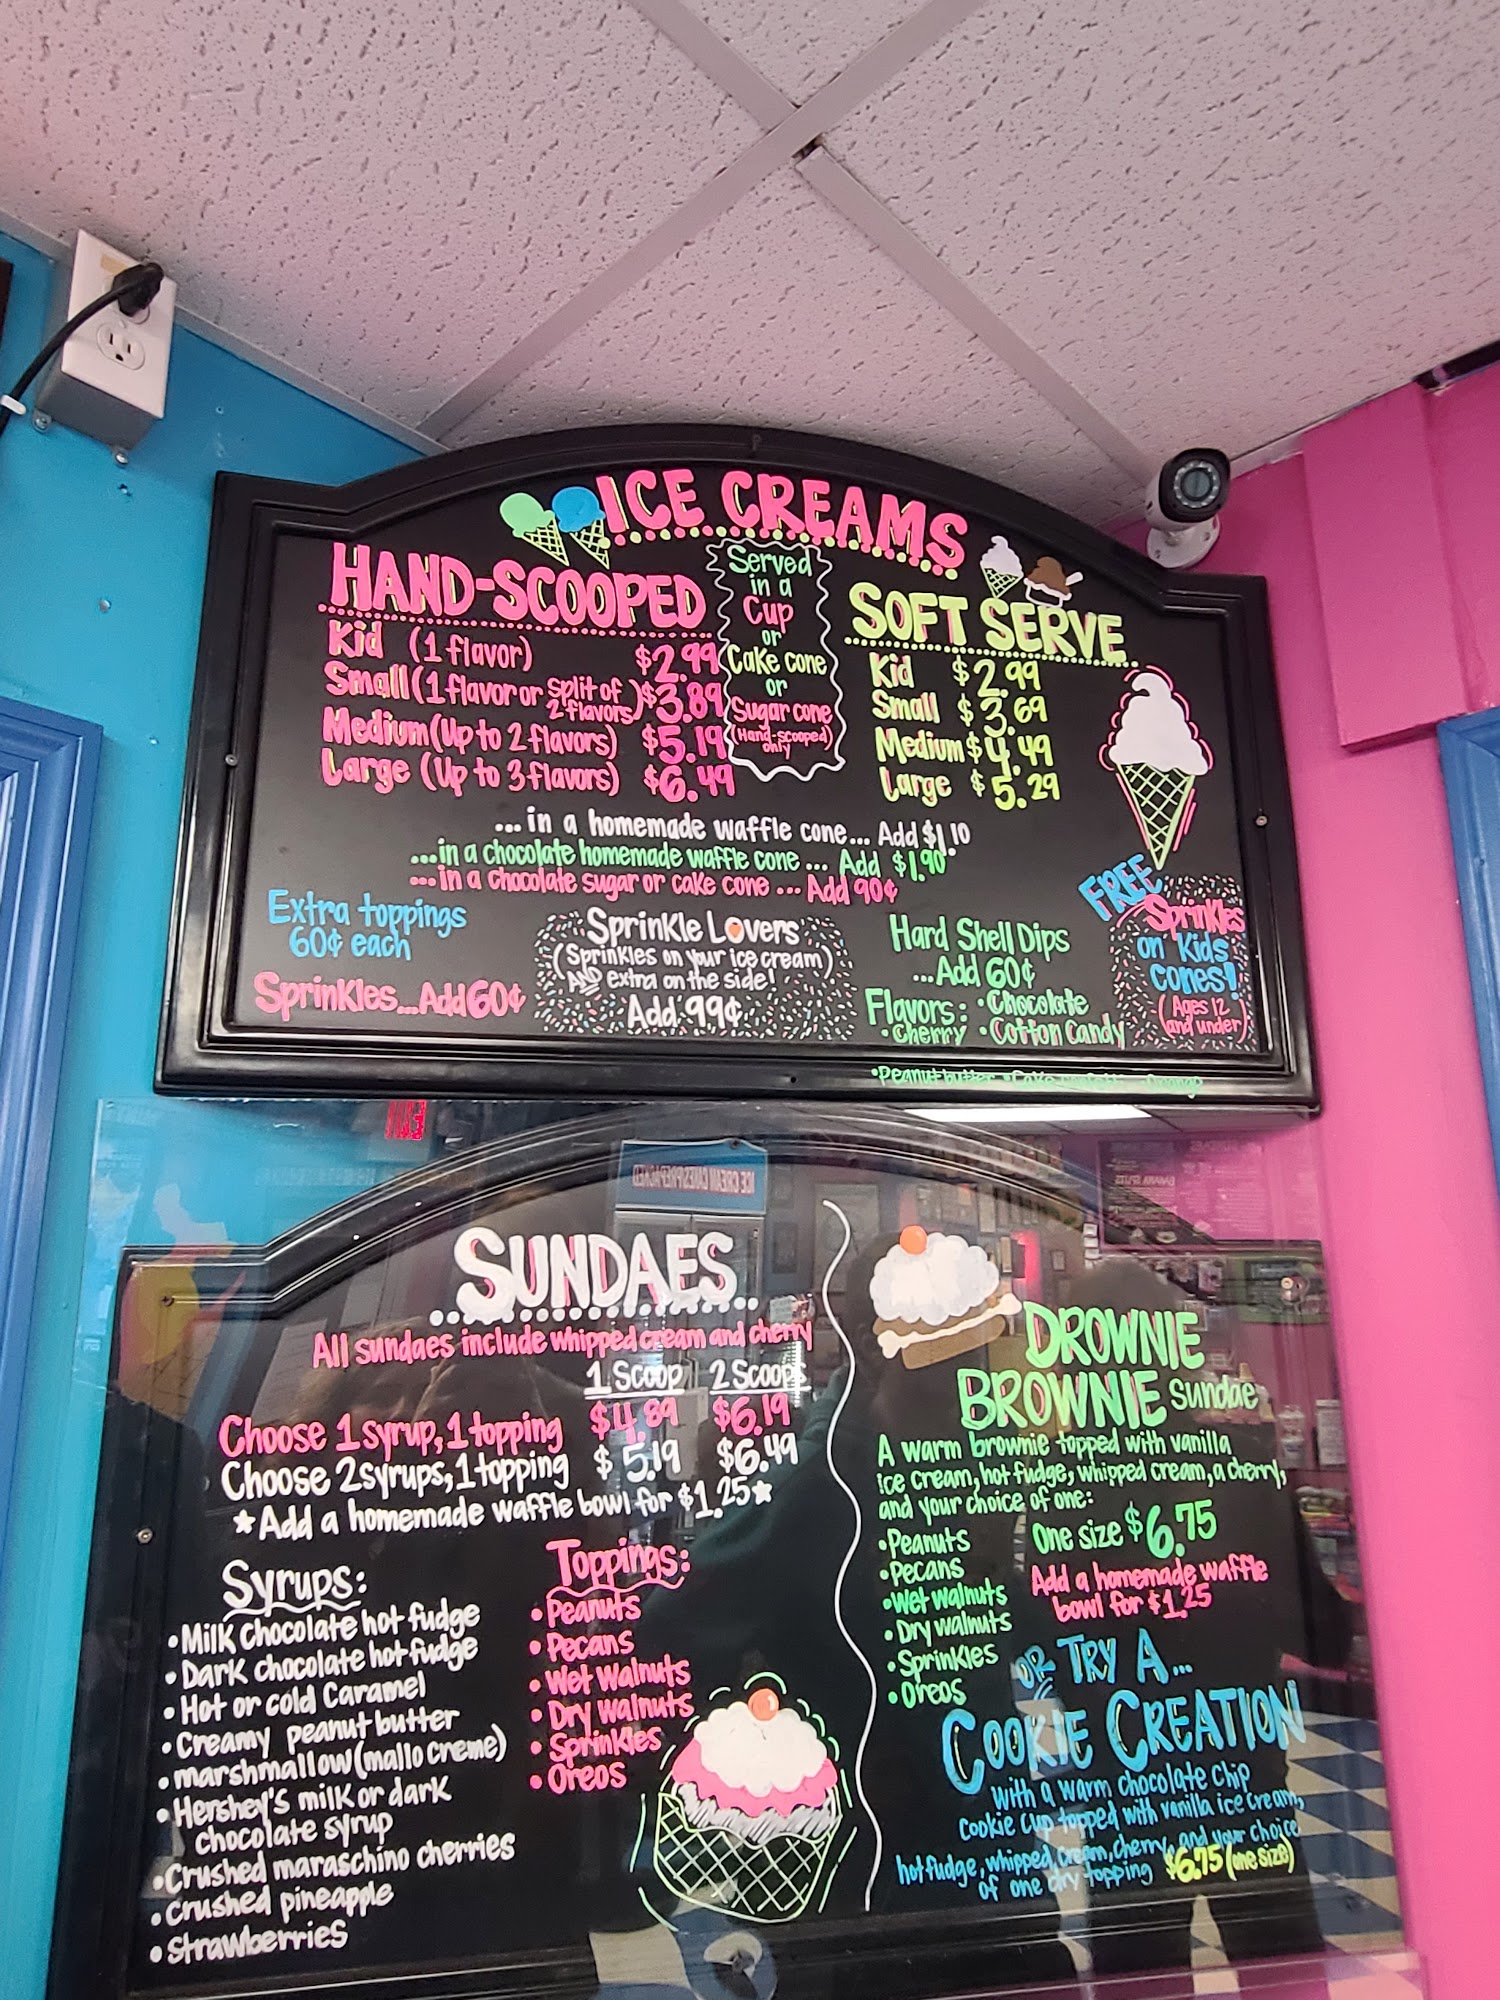 ICE CREAMS
HAND-SCOOPED
Kid (1 flavor) $2.99
Small (1 flavor or split of 2 flavors) $3.89
Medium (Up to 2 flavors) $5.19
Large (Up to 3 flavors) $6.49
Served
in a
Cup
or
Cake cone
or
Sugar cone
(Hand-scooped)
only
SOFT SERVE
Kid $2.99
Small $3.69
Medium $4.49
Large $5.29
... in a homemade waffle cone... Add $1.10
...in a chocolate homemade waffle cone ... Add $1.90
...in a chocolate sugar or cake cone ... Add 90¢
Extra toppings
60¢ each
Sprinkles...Add 60¢
Sprinkle Lovers
(Sprinkles on your ice cream)
AND extra on the side!
Add 99¢
Hard Shell Dips
...Add 60¢
Flavors: •Chocolate
•Cherry •Cotton Candy
•Peanut butter •Cake
FREE
Sprinkles
on Kids
cones!
(Ages 12
and under)
EXIT
ICE CREAM CAKES PREPACKED
SUNDAES
All sundaes include whipped cream and cherry
1 Scoop 2 Scoops
Choose 1 syrup, 1 topping $4.89 $6.19
Choose 2 syrups, 1 topping $5.19 $6.49
★Add a homemade waffle bowl for $1.25★
Syrups:
•Milk chocolate hot fudge
•Dark chocolate hot fudge
•Hot or cold Caramel
•Creamy peanut butter
•marshmallow (mallo creme)
•Hershey's milk or dark
chocolate syrup
•Crushed maraschino cherries
•crushed pineapple
•strawberries
Toppings:
•Peanuts
•Pecans
•Wet walnuts
•Dry walnuts
•Sprinkles
•Oreos
DROWNIE
BROWNIE Sundae
A warm brownie topped with vanilla
ice cream, hot fudge, whipped cream, a cherry,
and your choice of one:
•Peanuts
•Pecans
•Wet walnuts
•Dry walnuts
•Sprinkles
•Oreos
One size $6.75
Add a homemade waffle
bowl for $1.25
OR TRY A...
COOKIE CREATION
With a warm chocolate chip
cookie cup topped with vanilla ice cream,
hot fudge, whipped cream, cherry, and your choice
of one dry topping $6.75 (one size)